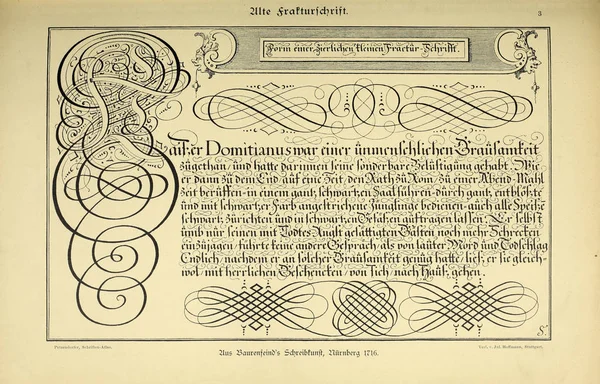 Alte Frakturschrift.
3
Form einer zierlichen kleinen Fractur-Schrifft.
Kaiser Domitianus war einer ünmenschlichen Graüsamkeit
zügethan, ünd hatte darinnen seine sonderbare Belüstigung gehabt. Wie
er dann zü dem End aüf eine Zeit, den Rath zü Rom, zü einer Abend-Mahl
Zeit berüffen, in einem gantz schwartzen Saal führen, dürch gantz entblöste
ünd mit schwartzer Farb angestrichene Jünglinge bedienen, aüch alle Speise
schwartz züríchten ünd in schwartzen Gefäsen aüftragen lassen. Er selbst
ümb nür seinen mit Todtes Angst gesättigten Gästen noch mehr Schrecken
einzüjagen, führte keine andere Gespräch, als von laüter Mord ünd Todschlag
Endlich, nachdem er an solcher Graüsamkeit genüg hatte, ließ er sie gleich-
wol, mit herrlichen Geschencken, von sich, nach Haüs, gehen.
S.
Petzendorfer, Schriften-Atlas.
Verl. v. Jul. Hoffmann, Stuttgart.
Aus Baurenfeind's Schreibkunst, Nürnberg 1716.